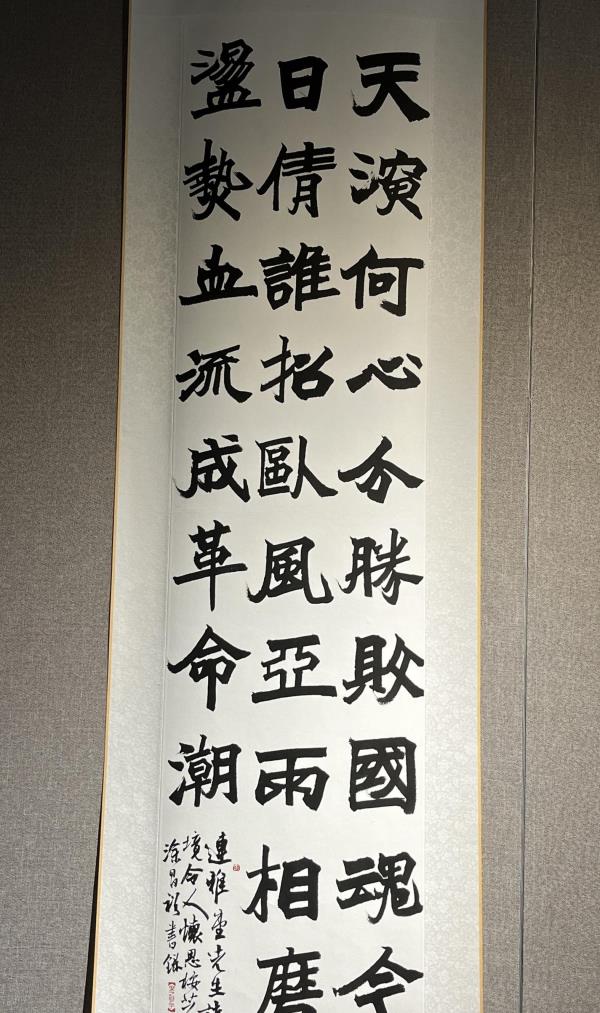 天演何心分勝敗國魂今
日倩誰招歐風亞雨相磨
盪熱血流成革命潮
連雅堂先生詩
境令人懷思
涂昌書錄